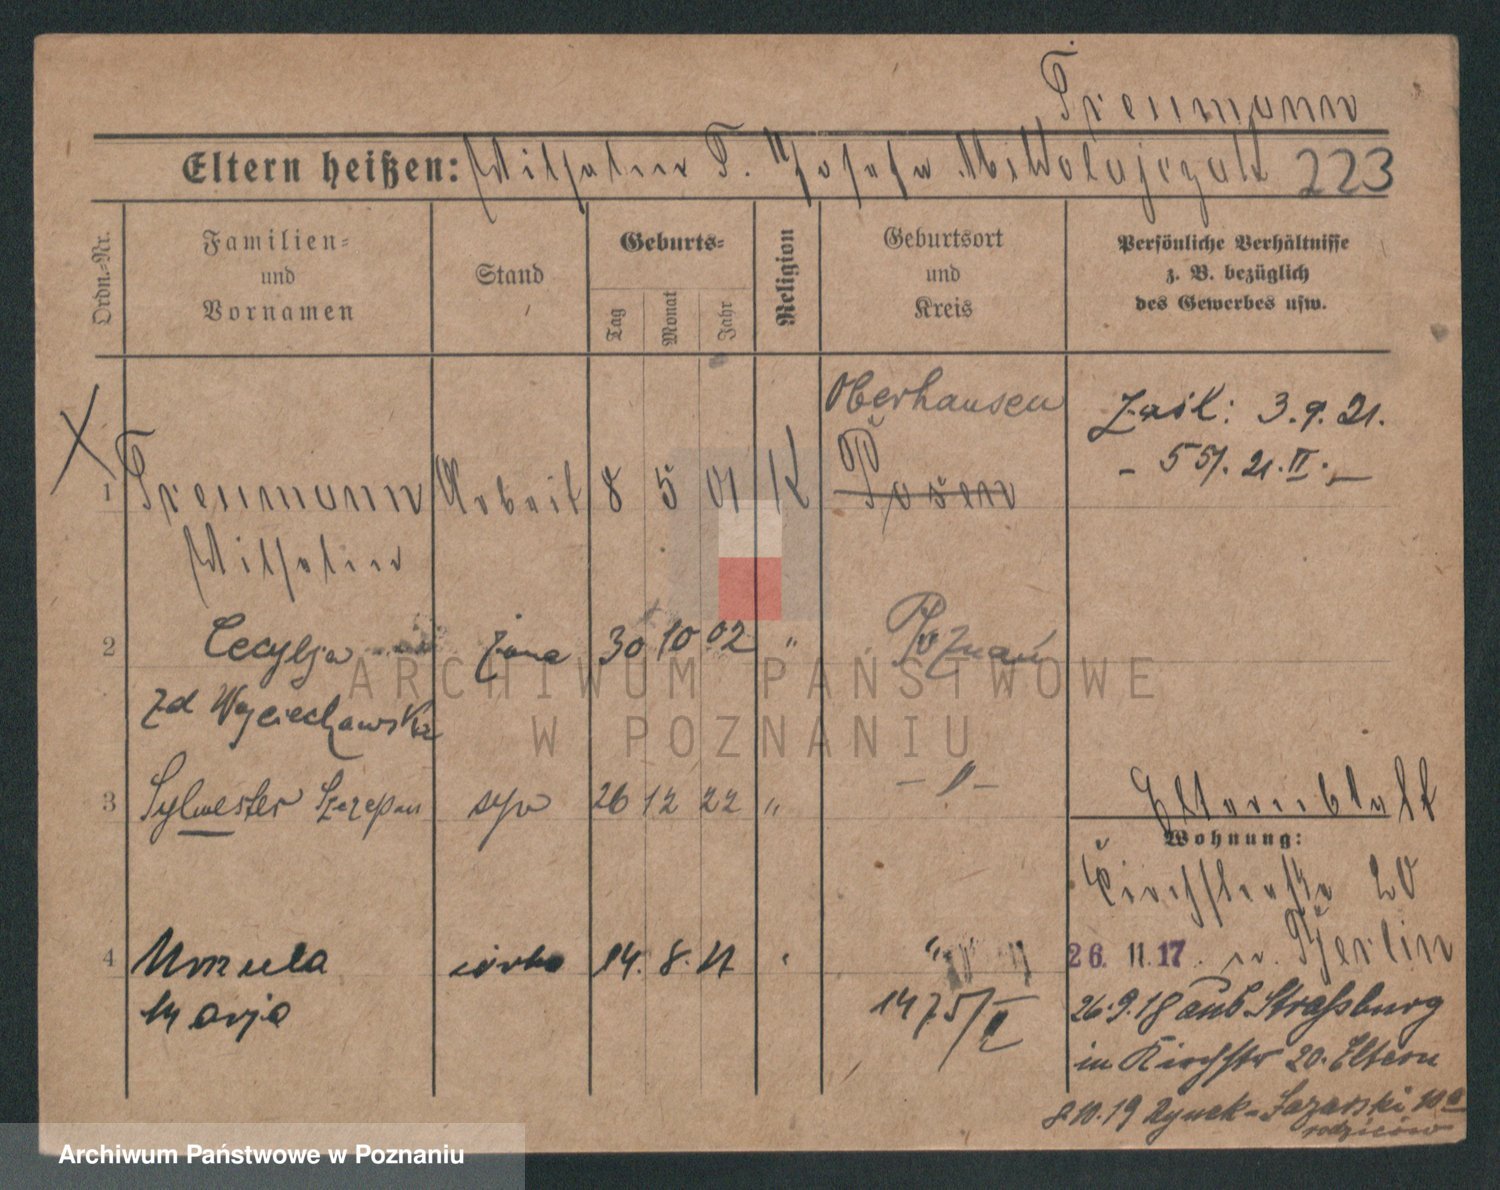 Treumann
Eltern heißen: Wilhelm T. Josefa Mikolajczak 223
Ordn.-Nr.
Familien-
und
Vornamen
Stand
Geburts-
Tag
Monat
Jahr
Religion
Geburtsort
und
Kreis
Persönliche Verhältnisse
z. B. bezüglich
des Gewerbes usw.
Oberhausen
1 Treumann Arbeit 8 5 01 K Posen
Wilhelm
Zaśl: 3.9.21.
21. II.
2 Cecylja żona 30 10 02 " Poznań
zd Wojciechowska
3 Sylwester Szczepan syn 26 12 22 " - " -
Elternblatt
Wohnung:
Kirchstraße 20
4 Urszula córka 14. 8. " "
Marja
1475/II
26. 11. 17. n. Berlin
26.9.18 aus Straßburg
in Kirchstr 20. Eltern
8.10.19 Rynek-Łazarski 10a
rodziców
ARCHIWUM PAŃSTWOWE
W POZNANIU
Archiwum Państwowe w Poznaniu